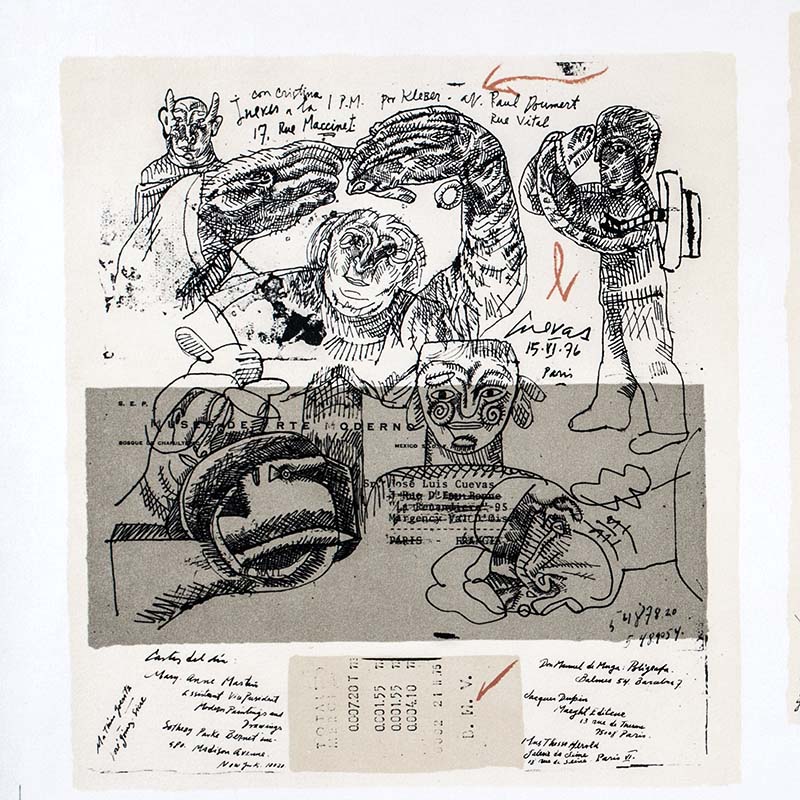 con Cristina
Jueves a la 1 P.M. por Kleber - av. Paul Doumert
17, Rue Maccinet
Rue Vital
Cuevas
15·VI·76
Paris
S. E. P.
MUSEO DE ARTE MODERNO
BOSQUE DE CHAPULTEPEC
MEXICO 5
Sr. José Luis Cuevas
"La Renardiere"-95
Margency Val D'Ois
PARIS - FRANCIA
5 489054.
Cartas del día:
Mary. Anne Martin
Assistant Vice President
Modern Paintings and
Drawings
Sotheby Parke Bernet inc.
980. Madison Avenue.
New York. 10020
TOTAL
MERCI
0.007.20 T
0.001.55
0.001.55
0.004.10
0002 21 11 75
D. M. V.
Don Manuel de Muga: Polígrafa.
Balmes 54 Barcelona 7
Jacques Dupin
Maeght Editeur
13 rue de
75008 Paris.
Galerie de Seine
18 rue de Seine. Paris VI.